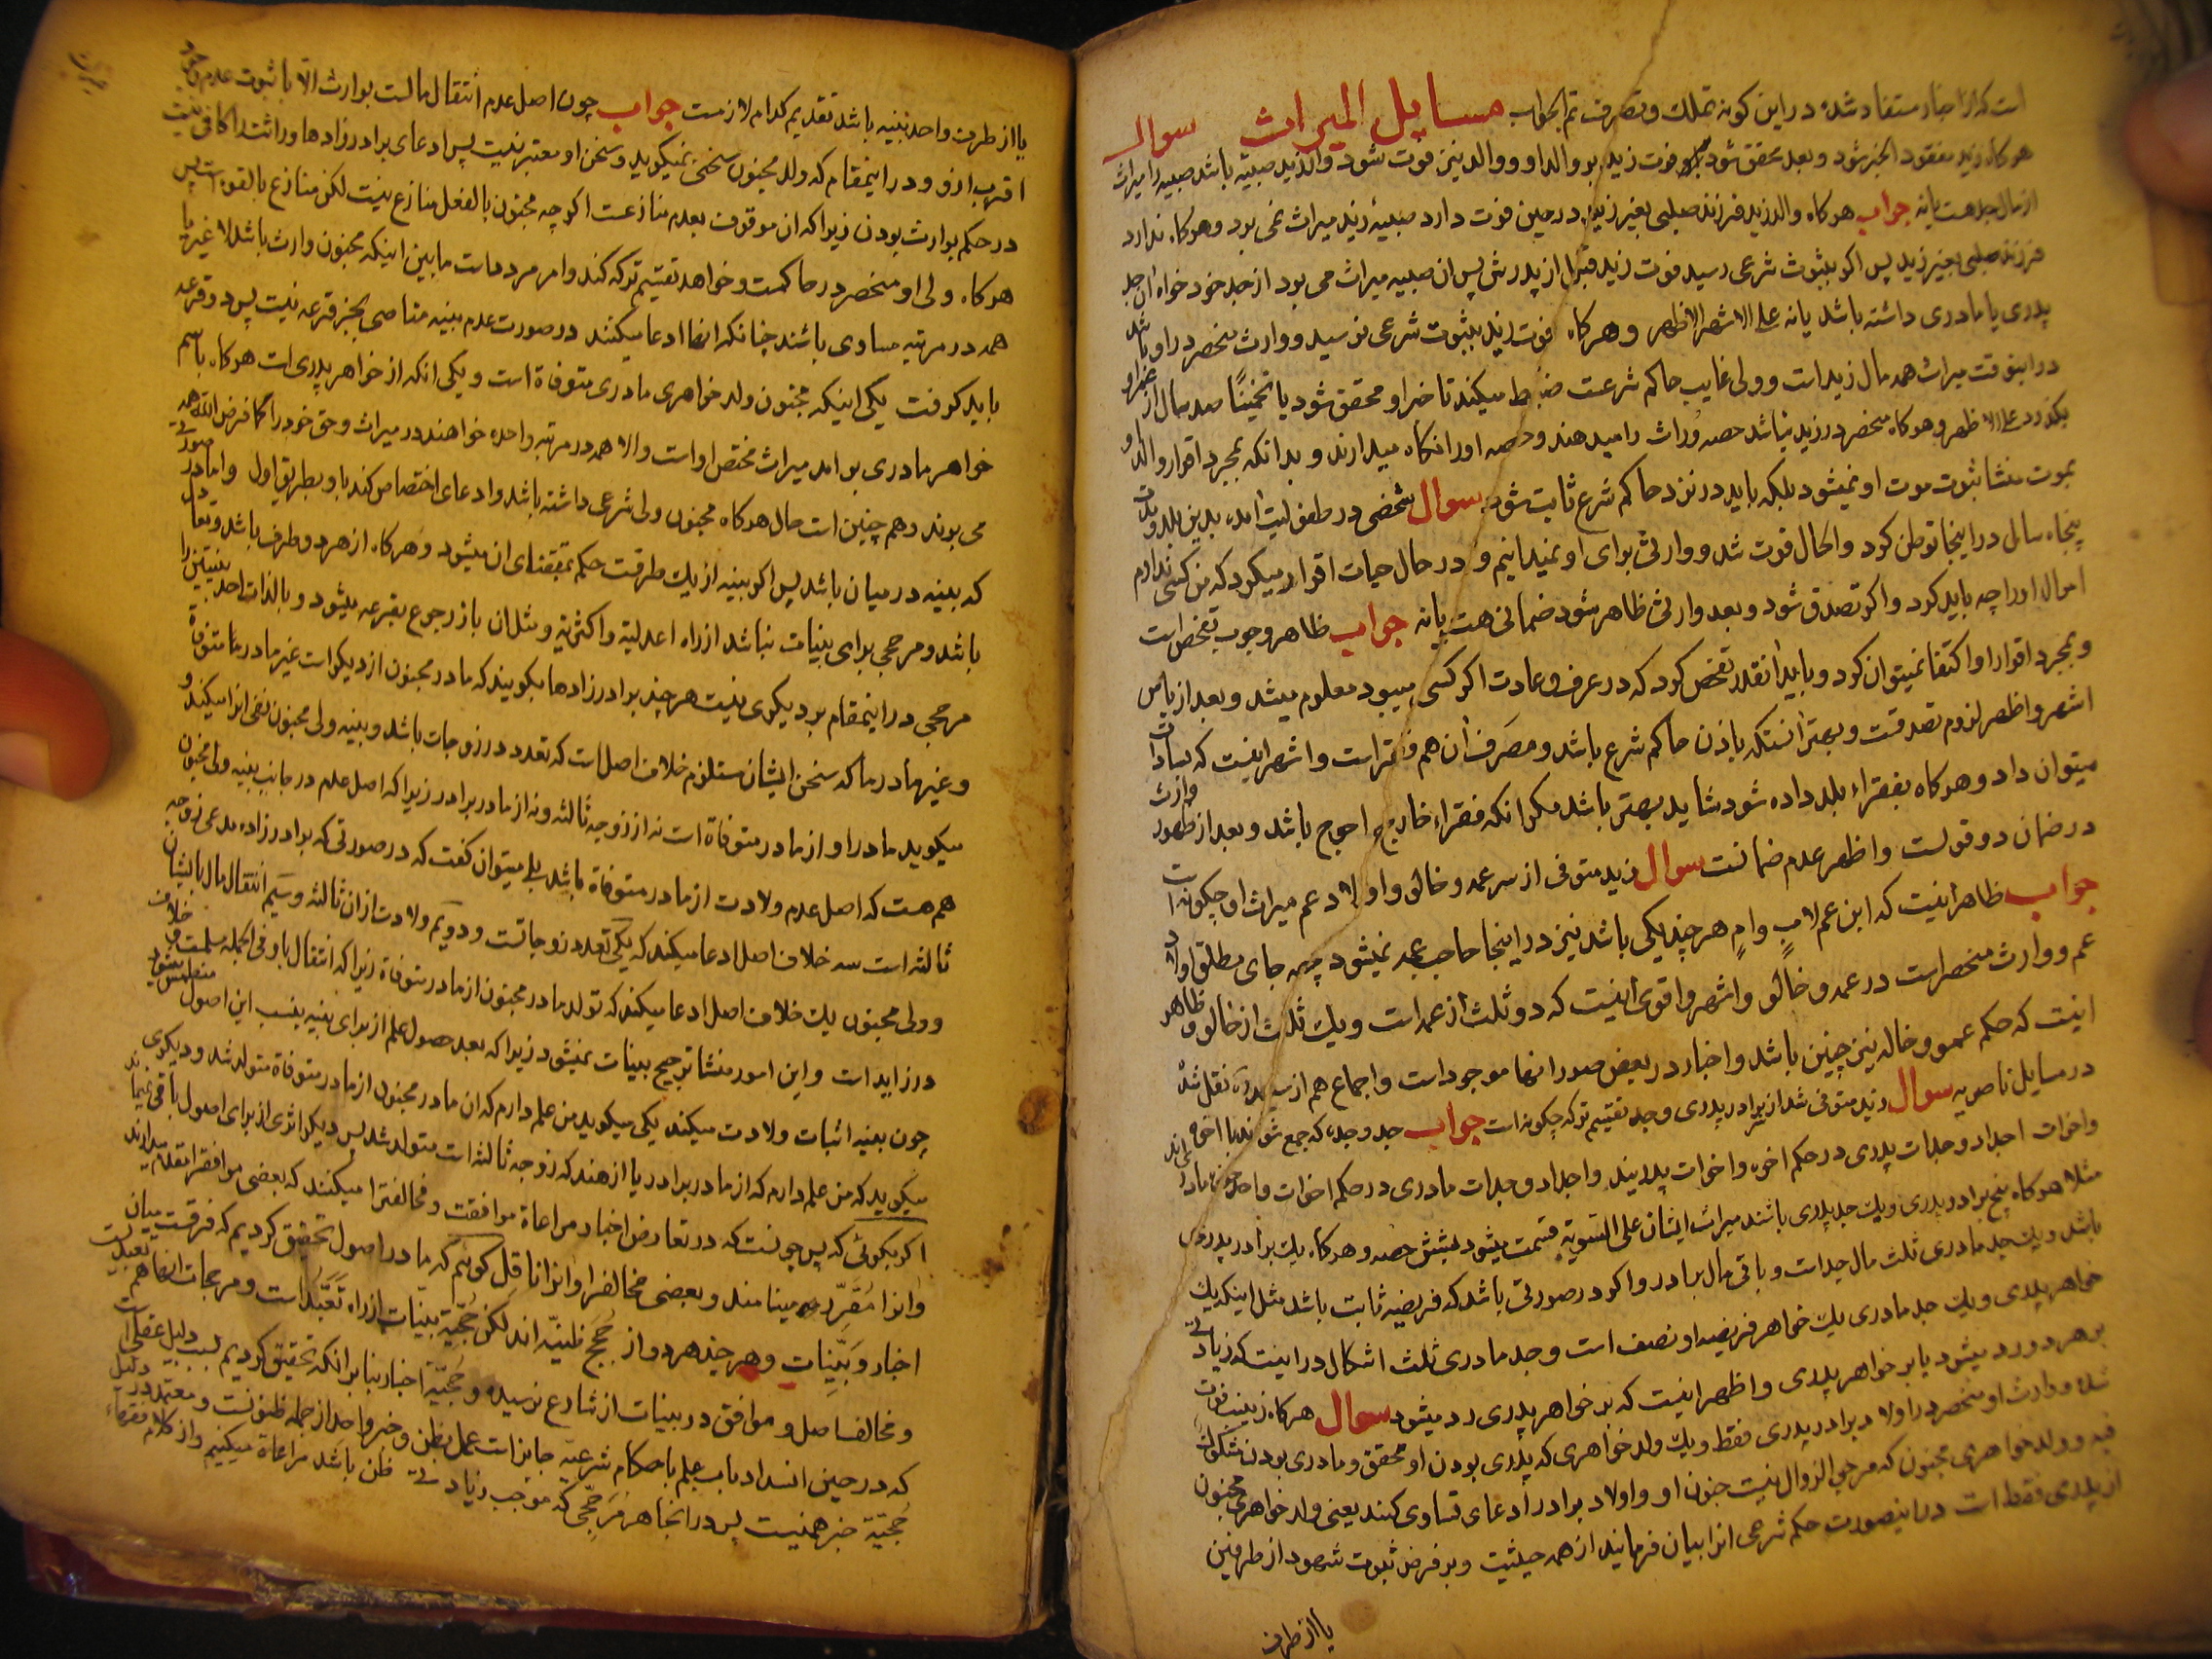 است که از اخبار مستفاد شده در این کونه تملک و تصرف تم الجواب مسایل المیراث سوال
هرکاه زید مفقود الخبر شود و بعد محقق شود فوت زید بر والد او و والد نیز فوت شود و از زید صبیه باشد صبیه را میراث
از مال جد هست یا نه جواب هرکاه والد زید فرزند صلبی بغیر زید در حین فوت دارد صبیهٔ زید میراث نمی برد و هرکاه ندارد
فرزند صلبی بغیر زید پس اکر بثبوت شرعی رسید فوت زید قبل از پدرش پس ان صبیه میراث می برد از جد خود خواه ان جد
پدری یا مادری داشته باشد یا نه علی الاشهر الاظهر و هرکاه فوت زید بثبوت شرعی نرسید و وارث منحصر در او باشد
در اینوقت میراث همه مال زید است و ولی غایب حاکم شرعست ضبط میکند تا خبر او محقق شود یا تخمیناً صد سال از عمر او
بکذرد علی الاظهر و هرکاه منحصر در زید نباشد حصه وراث را میدهند و حصه او را نکاه میدارند و بدانکه بمجرد اقرار والد او
بموت منشا ثبوت موت او نمیشود بلکه باید در نزد حاکم شرع ثابت شود سوال شخصی در طفولیت امده بدین بلد و مدت
پنجاه سال در اینجا توطن کرد و الحال فوت شد و وارثی برای او نمیدانیم و در حال حیات اقرار میکرد که من کسی ندارم
اموال او را چه باید کرد و اکر تصدق شود و بعد وارثی ظاهر شود ضمانی هست یا نه جواب ظاهر وجوب تفحص است
و بمجرد اقرار او اکتفا نمیتوان کرد و باید انقدر تفحص کرد که در عرف و عادت اکر کسی میبود معلوم میشد و بعد از یاس
اشهر و اظهر لزوم تصدقست و بهتر انستکه باذن حاکم شرع باشد و مصرف ان هم فقراست و اشهر اینست که بسادات
میتوان داد و هرکاه بفقراء بلد داده شود شاید بهتر باشد مکر انکه فقراء خارج احوج باشد و بعد از ظهور وارث
در ضمان دو قولست و اظهر عدم ضمانست سوال زید متوفی از سر عمه و خالو و اولاد عم میراث او چکونه است
جواب ظاهر اینست که ابن عم لابٍ و امٍ هر چند یکی باشد نیز در اینجا حاجب عمه نمیشود چه جای مطلق اولاد
عم و وارث منحصر است در عمه و خالو و اشهر و اقوی اینست که دو ثلث از عمه است و یک ثلث از خالو و ظاهر
اینست که حکم عمو و خاله نیز چنین باشد و اخبار در بعض صور انها موجود است و اجماع هم از سید ره نقل شده
در مسایل ناصریه سوال زید متوفی شد از برادر پدری و جد تقسیم ترکه چکونه است جواب جد و جده که جمع شوند با اخوه
و اخوات اجداد و جدات پدری در حکم اخوه و اخوات پدریند و اجداد و جدات مادری در حکم اخوات و اخوه مادری اند
مثلا هرکاه پنج برادر پدری و یک جد پدری باشند میراث ایشان علی السویه قسمت میشود بشش حصه و هرکاه یک برادر پدری
باشد و یک جد مادری ثلث مال جد است و باقی مال برادر و اکر در صورتی باشد که فریضه ثابت باشد مثل اینکه یک
خواهر پدری و یک جد مادری یک خواهر فریضه او نصف است و جد مادری ثلث اشکال در اینست که زیادتی
بر هر دو رد میشود یا بر خواهر پدری و اظهر اینست که بر خواهر پدری رد میشود سوال هرکاه زینب فوت
شده و وارث او منحصر در اولاد برادر پدری فقط و یک ولد خواهری که پدری بودن او محقق و مادری بودن مشکوک
فیه و ولد خواهری مجنون که مرجو الزوال نیست جنون او و اولاد برادر ادعای تساوی کنند یعنی ولد خواهر مجنون
از پدری فقط است در اینصورت حکم شرعی انرا بیان فرمائید از همه حیثیت و بر فرض ثبوت شهود از طرفین
یا از طرف
یا از طرف واحد بینه باشد تقدیم کدام لازمست جواب چون اصل عدم انتقال مالست بوارث الا با ثبوت عدم وجود
اقرب ازو و در اینمقام که ولد مجنون سخنی نمیکوید و سخن او معتبر نیست پس ادعای برادرزادها وراثت را کافی نیست
در حکم بوارث بودن زیرا که ان موقوف بعدم منازعست اکرچه مجنون بالفعل منازع نیست لکن منازع بالقوه است پس
هرکاه ولی او منحصر در حاکمست و خواهد تقسیم ترکه کند و امر مردد است مابین اینکه مجنون وارث باشد لا غیر یا
همه در مرتبه مساوی باشند چنانکه انها ادعا میکنند در صورت عدم بینه مناصی بجز قرعه نیست پس دو قرعه
باید کرفت یکی اینکه مجنون ولد خواهری مادری متوفاة است و یکی انکه از خواهر پدری است هرکاه باسم
خواهر مادری برامد میراث مختص او است و الا همه در مرتبه واحده خواهند در میراث و حق خود را کما فرض الله همه
می برند و هم چنین است حال هرکاه مجنون ولی شرعی داشته باشد و ادعای اختصاص کند باو بطریق اول و اما در صورتی
که بینه در میان باشد پس اکر بینه از یک طرفست حکم بمقتضای ان میشود و هرکاه از هر دو طرف باشد و تعادل
باشد و مرجحی برای بینات نباشد از راه اعدلیة و اکثریة و مثل ان باز رجوع بقرعه میشود و بالذات احد بینتین را
مرجحی در اینمقام بر دیکری نیست هرچند برادرزادها بکویند که مادر مجنون از دیکر است غیر مادر ما متوفاة
و غیر مادر ما که سخن ایشان مستلزم خلاف اصل است که تعدد در زوجات باشد و بینه ولی مجنون نفی انرا میکند و
میکوید مادر او از مادر متوفاة است نه از زوجه ثالثه و نه از مادر برادر زیرا که اصل عدم در جانب بینه ولی مجنون
هم هست که اصل عدم ولادت از مادر متوفاة باشد بلی میتوان کفت که در صورتی که برادرزاده مدعی زوجه
ثالثه است سه خلاف اصل ادعا میکند که یکی تعدد زوجاتست و دویم ولادت از ان ثالثه و سیم انتقال مال بایشان
و ولی مجنون یک خلاف اصل ادعا میکند که تولد مادر مجنون از مادر متوفاة زیرا که انتقال باو فی الجمله مسلمست و خلاف
در زاید است و این امور منشا ترجیح بینات نمیشود زیرا که بعد حصول علم از برای بینه بنسب این اصول منقطع میشود
چون بینه اثبات ولادت میکند یکی میکوید من علم دارم که ان مادر مجنون از مادر متوفاة متولد شد و دیکری
میکوید که من علم دارم که از مادر برادر یا از هند که زوجه ثالثه است متولد شد پس دیکر اثری از برای اصول باقی نمیماند
اکر بکوئی که پس چونست که در تعارض اخبار مراعاة موافقت و مخالفت را میکنند که بعضی موافق را مقدم میدارند
و انرا مقرر مینامند و بعضی مخالف را و انرا ناقل کوئیم که ما در اصول تحقیق کردیم که فرقست میان
اخبار و بینات و هرچند هر دو از حجج ظنیه اند لکن حجیة بینات از راه تعبد است و مرجحات انها هم تعبدیست
و مخالف اصل و موافق در بینات از شارع نرسیده و حجیة اخبار بنا بر انکه تحقیق کردیم بسبب دلیل عقلی است
که در حین انسداد باب علم باحکام شرعیه جایز است عمل بظن و خبر واحد از جمله ظنونست و معتمد در دلیل
حجیة خبر همینست پس در انجا هر مرجحی که موجب زیادتی ظن باشد مراعاة میکنیم و از کلام فقهاء